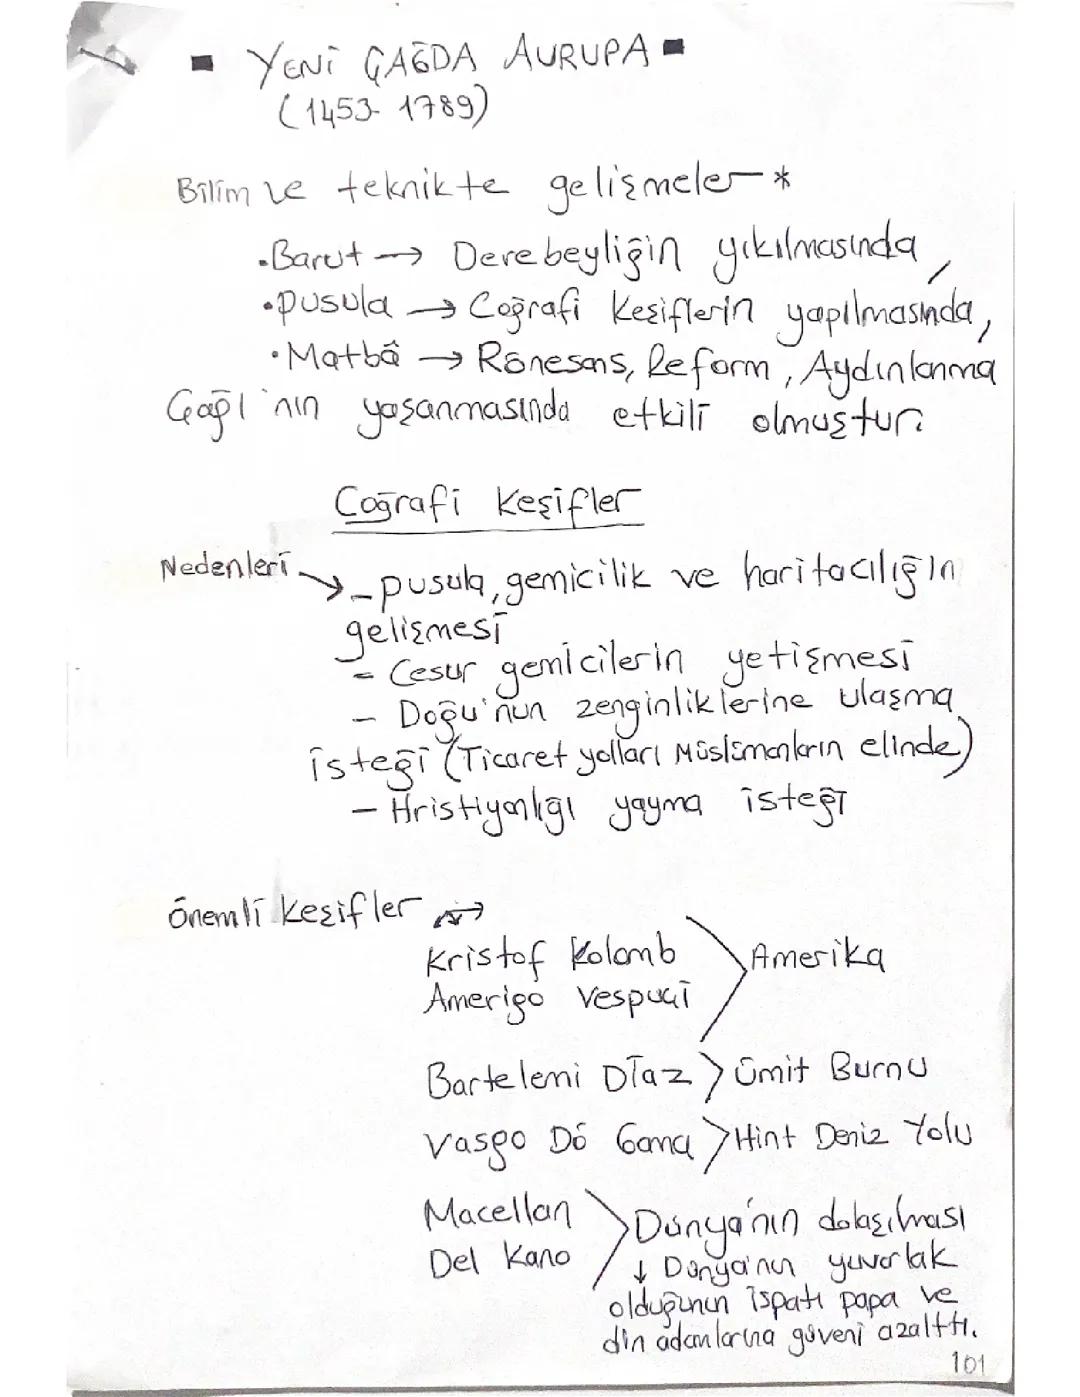 - YENİ ÇAĞDA AVRUPA -
(1453- 1789)
Bilim ve teknikte gelişmeler *
• Barut → Derebeyliğin yıkılmasında,
• pusula → Coğrafi Keşiflerin yapılmasında,
• Matbâ → Rönesans, Reform, Aydınlanma
Çağı'nın yaşanmasında etkili olmuştur.
Coğrafi Keşifler
Nedenleri → - pusula, gemicilik ve haritacılığın
gelişmesi
- Cesur gemicilerin yetişmesi
- Doğu'nun zenginliklerine ulaşma
isteği (Ticaret yolları Müslümanların elinde)
- Hristiyanlığı yayma isteği
Önemli keşifler →
Kristof Kolomb > Amerika
Amerigo Vespuci
Bartelemi Diaz > Ümit Burnu
Vasgo Dö Gama > Hint Deniz Yolu
Macellan > Dünya'nın dolaşılması
Del Kano ↓ Dünya'nın yuvarlak
olduğunun ispatı papa ve
din adamlarına güveni azalttı.
101